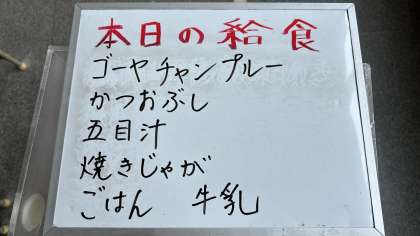 本日の給食
ゴーヤチャンプルー
かつおぶし
五目汁
焼きじゃが
ごはん　牛乳